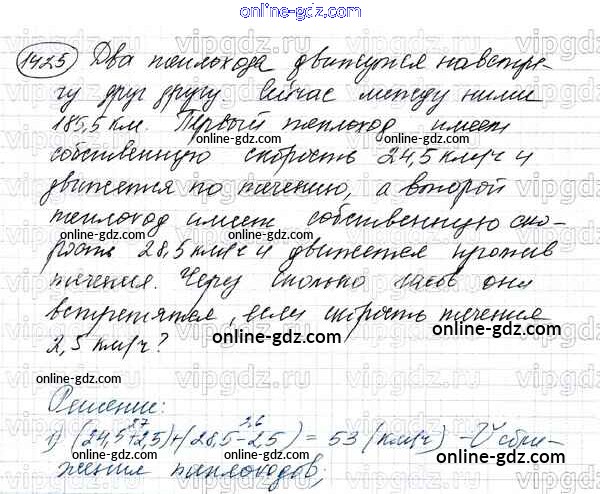 online-gdz.com
1425 Два теплохода движутся навстре-
чу друг другу Сейчас между ними
185,5 км. Первый теплоход имеет
собственную скорость 24,5 км/ч и
движется по течению, а второй
теплоход имеет собственную ско-
рость 28,5 км/ч и движется против
течения. Через сколько часов они
встретятся, если скорость течения
2,5 км/ч?
Решение:
27 26
1) (24,5+2,5)+(28,5-2,5) = 53 (км/ч) - V сбли-
жения теплоходов;